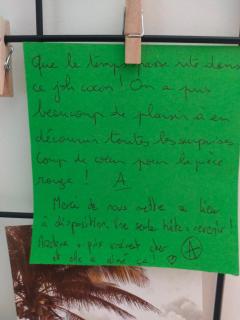 Que le temps passe vite dans
ce joli cocon ! On a pris
beaucoup de plaisir à en
découvrir toutes les surprises
Coup de cœur pour la pièce
rouge ! A
Merci de nous mettre ce lieu
à disposition. Une seule hâte : revenir !
a pris
et elle a aimé ça ! ♡ A